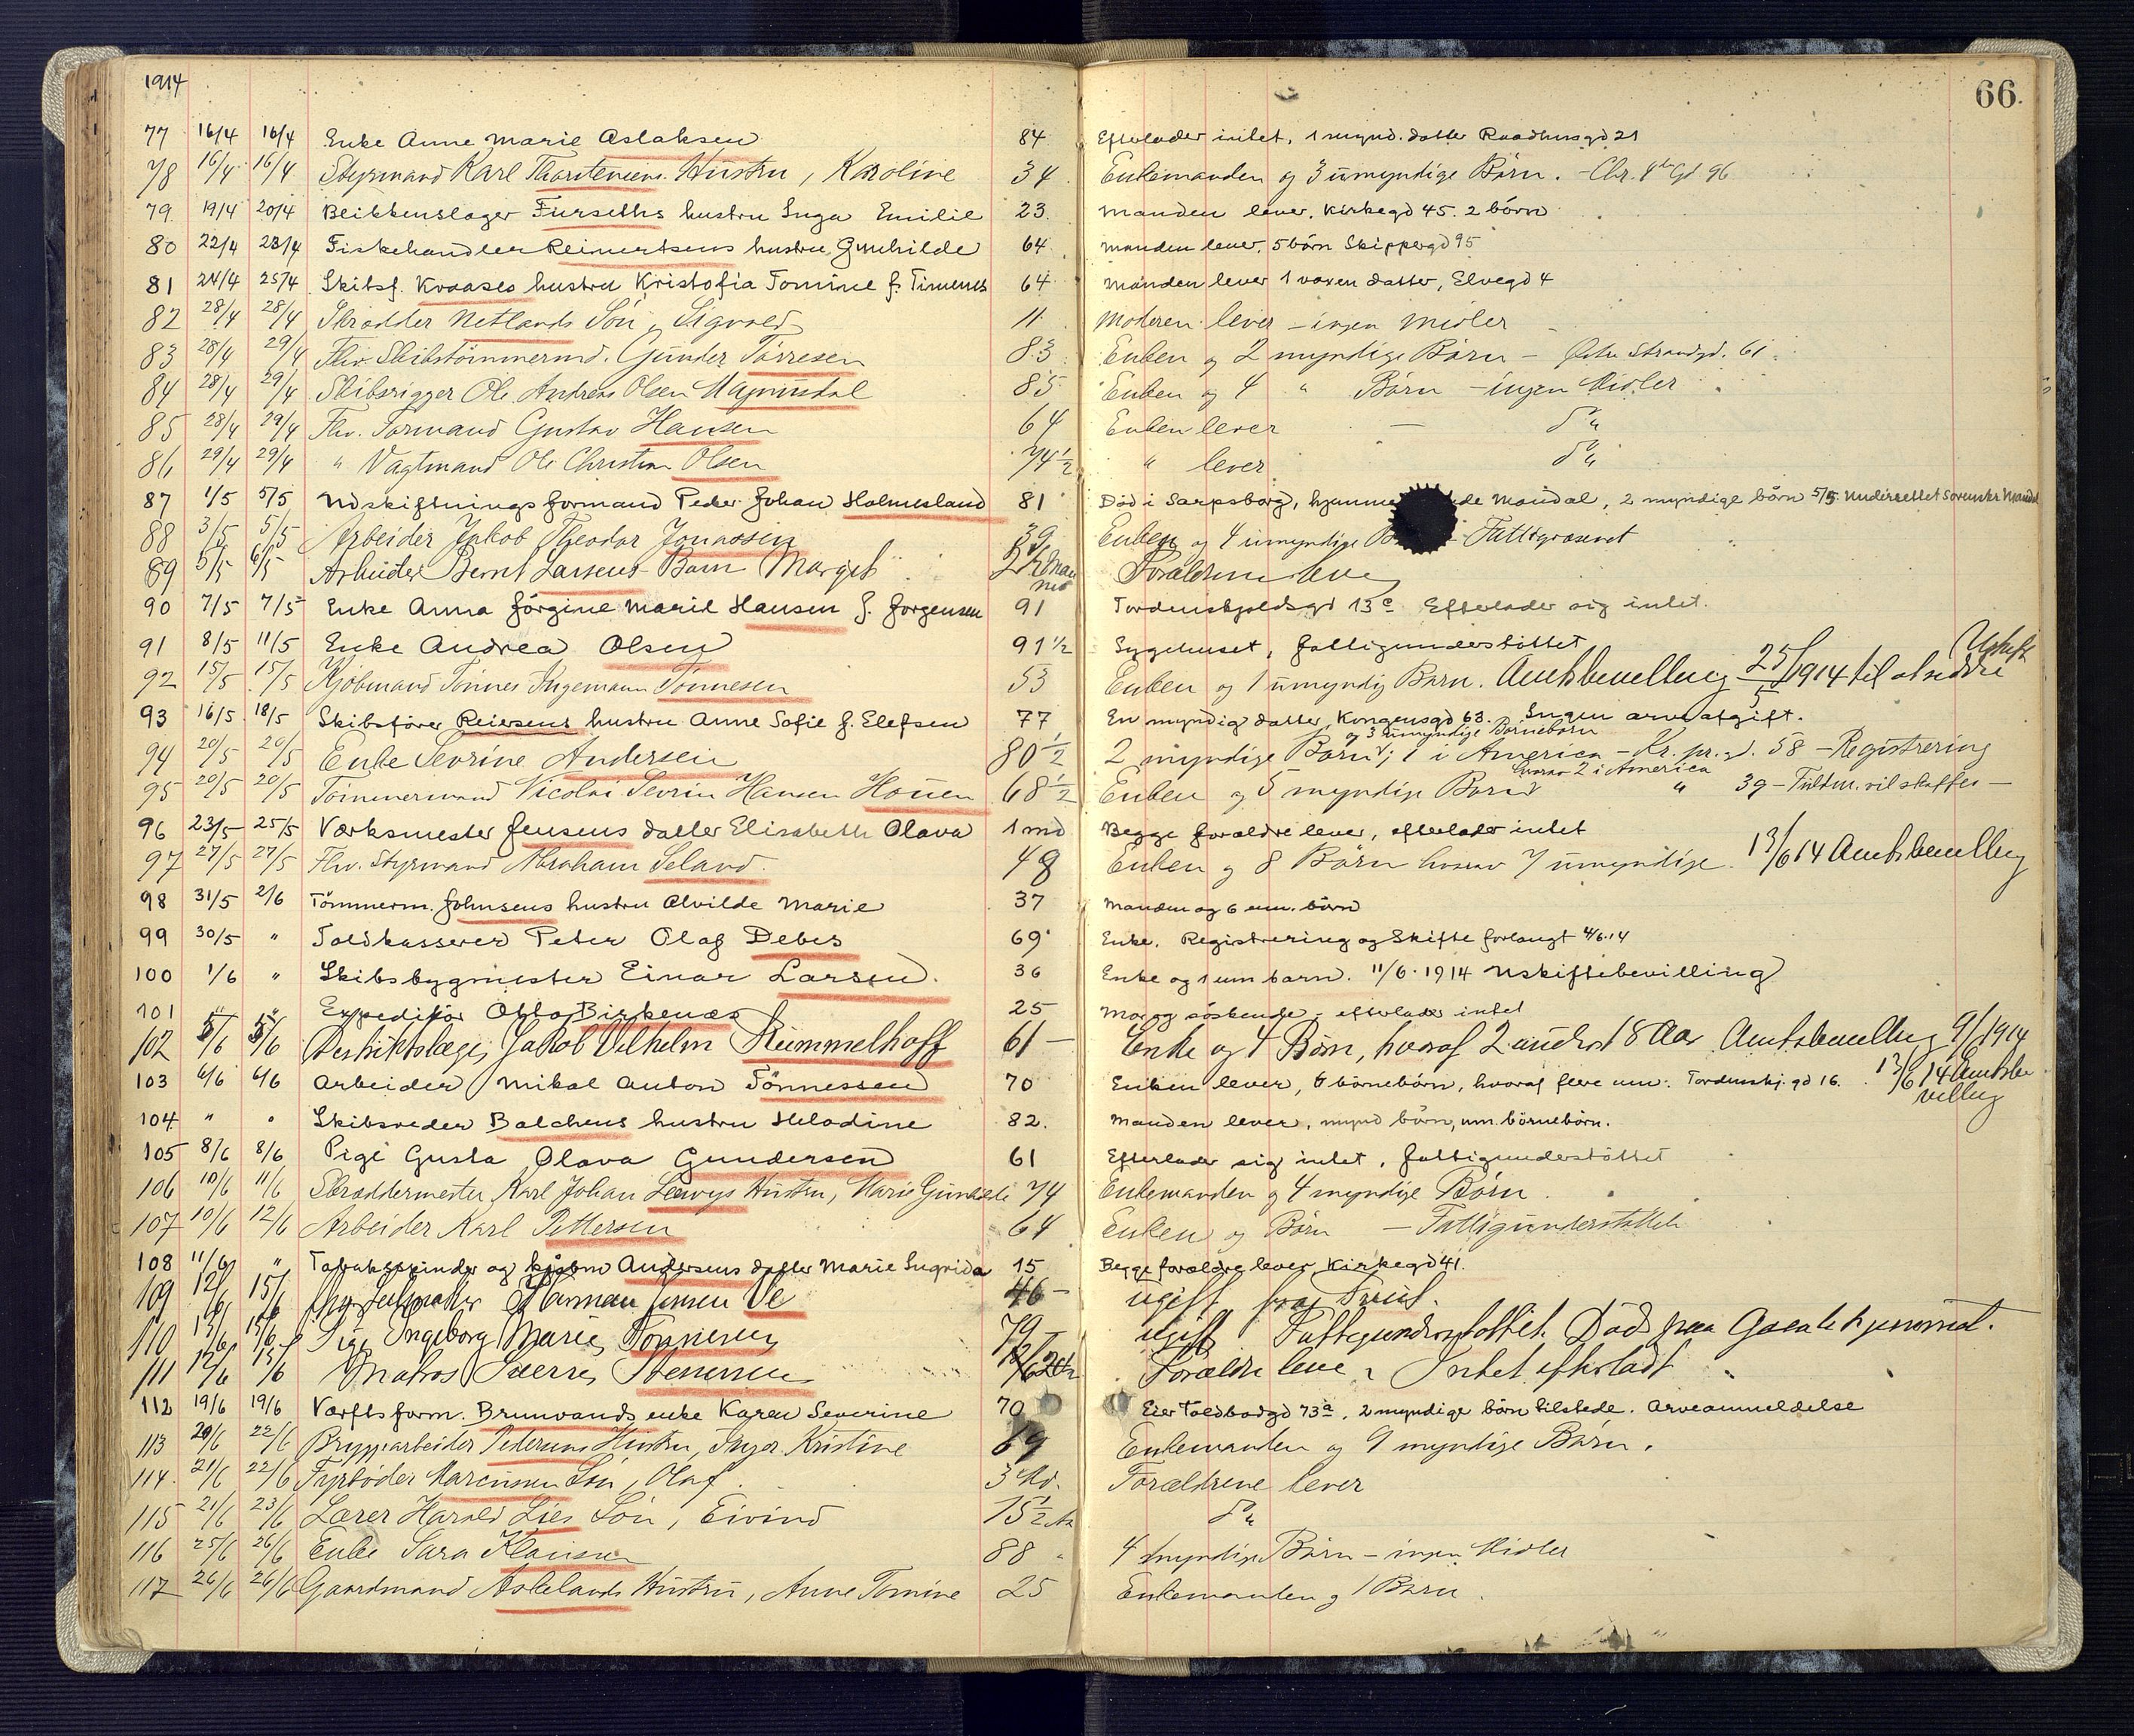 1914
66.
77 16/4 16/4 Enke Anne Marie Aslaksen 84 Efterlader intet, 1 mynd. datter Raadhusgd 21
78 16/4 16/4 Styrmand Karl Thorstensens Hustru, Karoline 34 Enkemanden og 3 umyndige Børn. - Chr. 4de Gd 96
79 19/4 20/4 Blikkenslager Furseths hustru Inga Emilie 23. Manden lever. Kirkegd 45. 2 børn
80 22/4 23/4 Fiskehandler Reinertsens hustru Gunhilde 64 Manden lever, 5 børn Skippergd 95
81 24/4 25/4 Skibsf. Kraases hustru Kristofia Tomine f. Timenes 64 Manden lever 1 voxen datter, Elvegd 4
82 28/4 28/4 Skrædder Netlands Søn, Sigvald 11 Moderen lever - ingen midler
83 28/4 29/4 Fhv. Skibstømmermd. Gunder Tørresen 83 Enken og 2 myndige Børn - Østre Strandgd. 61
84 28/4 29/4 Skibsrigger Ole Andreas Olsen Magnusdal 85 Enken og 4 " Børn - ingen Midler
85 28/4 29/4 Fhv. Formand Gustav Hansen 64 Enken lever - do
86 29/4 29/4 " Vagtmand Ole Christian Olsen 74 1/2 " lever do
87 1/5 5/5 Udskiftningsformand Peder Johan Holmesland 81 Død i Sarpsborg, Mandal, 2 myndige børn 5/5 Underrettet Sorenskr Mandal
88 3/5 5/5 Arbeider Jakob Theodor Jonassen 39 Enken og 4 umyndige - Fattigvæsenet
89 5/5 6/5 Arbeider Bernt Larsens Barn Margit Forældrene leve
90 7/5 7/5 Enke Anna Jørgine Marie Hansen f. Jørgensen 91 Tordenskjoldsgd 13c Efterlader sig intet.
91 8/5 11/5 Enke Andrea Olsen 91 1/2 Sygehuset, fattigunderstøttet
92 15/5 15/5 Kjøbmand Tønnes Ingemann Tønnesen 53 Enken og 1 umyndig Barn. Amtsbevilling 25/5 1914 til at sidde Uskift
93 16/5 18/5 Skibsfører Reiersens hustru Anne Sofie f. Elefsen 77 En myndig datter, Kongensgd 63. Ingen arveafgift.
94 20/5 20/5 Enke Sevrine Andersen 80 1/2 2 myndige Børn og 3 umyndige Børnebørn; 1 i America - Kr. pr. 58 - Registrering
95 20/5 20/5 Tømmermand Nicolai Sevrin Hansen Houen 68 1/2 Enken og 5 myndige Børn hvorav 2 i America " 39 - Fuldm. vil skaffes -
96 23/5 25/5 Værksmester Jensens datter Elisabeth Olava 1 md Begge forældre lever, efterlader intet
97 27/5 27/5 Fhv. Styrmand Abraham Seland 48 Enken og 8 Børn hvorav 7 umyndige. 13/6 14 Amtsbevilling
98 31/5 2/6 Tømmerm. Johnsens hustru Alvilde Marie 37 Manden og 6 um. børn
99 30/5 " Toldkasserer Peter Olaf Debes 69 Enke. Registrering og Skifte forlangt 4/6.14
100 1/6 " Skibsbygmester Einar Larsen. 36 Enke og 1 um barn. 11/6.1914 Uskiftebevilling
101 " " Expeditør Otto Birkenæs 25 Mor og søskende - efterlader intet
102 5/6 5/6 Distriktslæge, Jakob Vilhelm Kummelhoff 61 - Enke og 4 Børn, hvoraf 2 under 18 Aar Amtsbevilling 9/ 1914
103 6/6 6/6 Arbeider Mikal Anton Tønnessen 70 Enken lever, 6 børnebørn, hvoraf flere um: Tordenskj. gd 16. 13/6 14 Amtsbevilling
104 " " Skibsreder Balchens hustru Heladine 82. Manden lever, mynd børn, um. børnebørn.
105 8/6 8/6 Pige Gusta Olava Gundersen 61 Efterlader sig intet, fattigunderstøttet
106 10/6 11/6 Skræddermester Karl Johan Leewys Hustru, Marie Gunhilde 74 Enkemanden og 4 myndige Børn.
107 10/6 12/6 Arbeider Karl Pettersen 64 Enken og Børn - Fattigunderstøttede
108 11/6 " Tobaksspinder og kjøbm Andersens datter Marie Ingrida 15 Begge forældre lever Kirkegd 41.
109 12/6 15/6 Herman Jensen Ve 46 - ugift fra
110 13/6 15/6 Pige Ingeborg Marie Tønnesen 79 - ugift Fattigunderstøttet. Død paa Gamlehjemmet.
111 12/6 15/6 Matros Sverre Stenersen Forældre leve, Intet efterladt
112 19/6 19/6 Værftsform. Brunvands enke Karen Severine 70 Eier Toldbodgd 73a, 2 myndige børn tilstede. Arveanmeldelse
113 20/6 22/6 Bryggearbeider Pedersens Hustru, Inger Kristine 69 Enkemanden og 9 myndige Børn.
114. 21/6 22/6 Fyrbøder Marcussens Søn, Olaf 3 Md. Forældrene lever
115 21/6 23/6 Lærer Harald Lies Søn, Eivind 15 1/2 do
116 25/6 26/6 Enke Sara Klausen 88 4 myndige Børn - ingen Midler
117 26/6 26/6 Gaardmand Askelands Hustru, Anne Tomine 25 Enkemanden og 1 Barn.